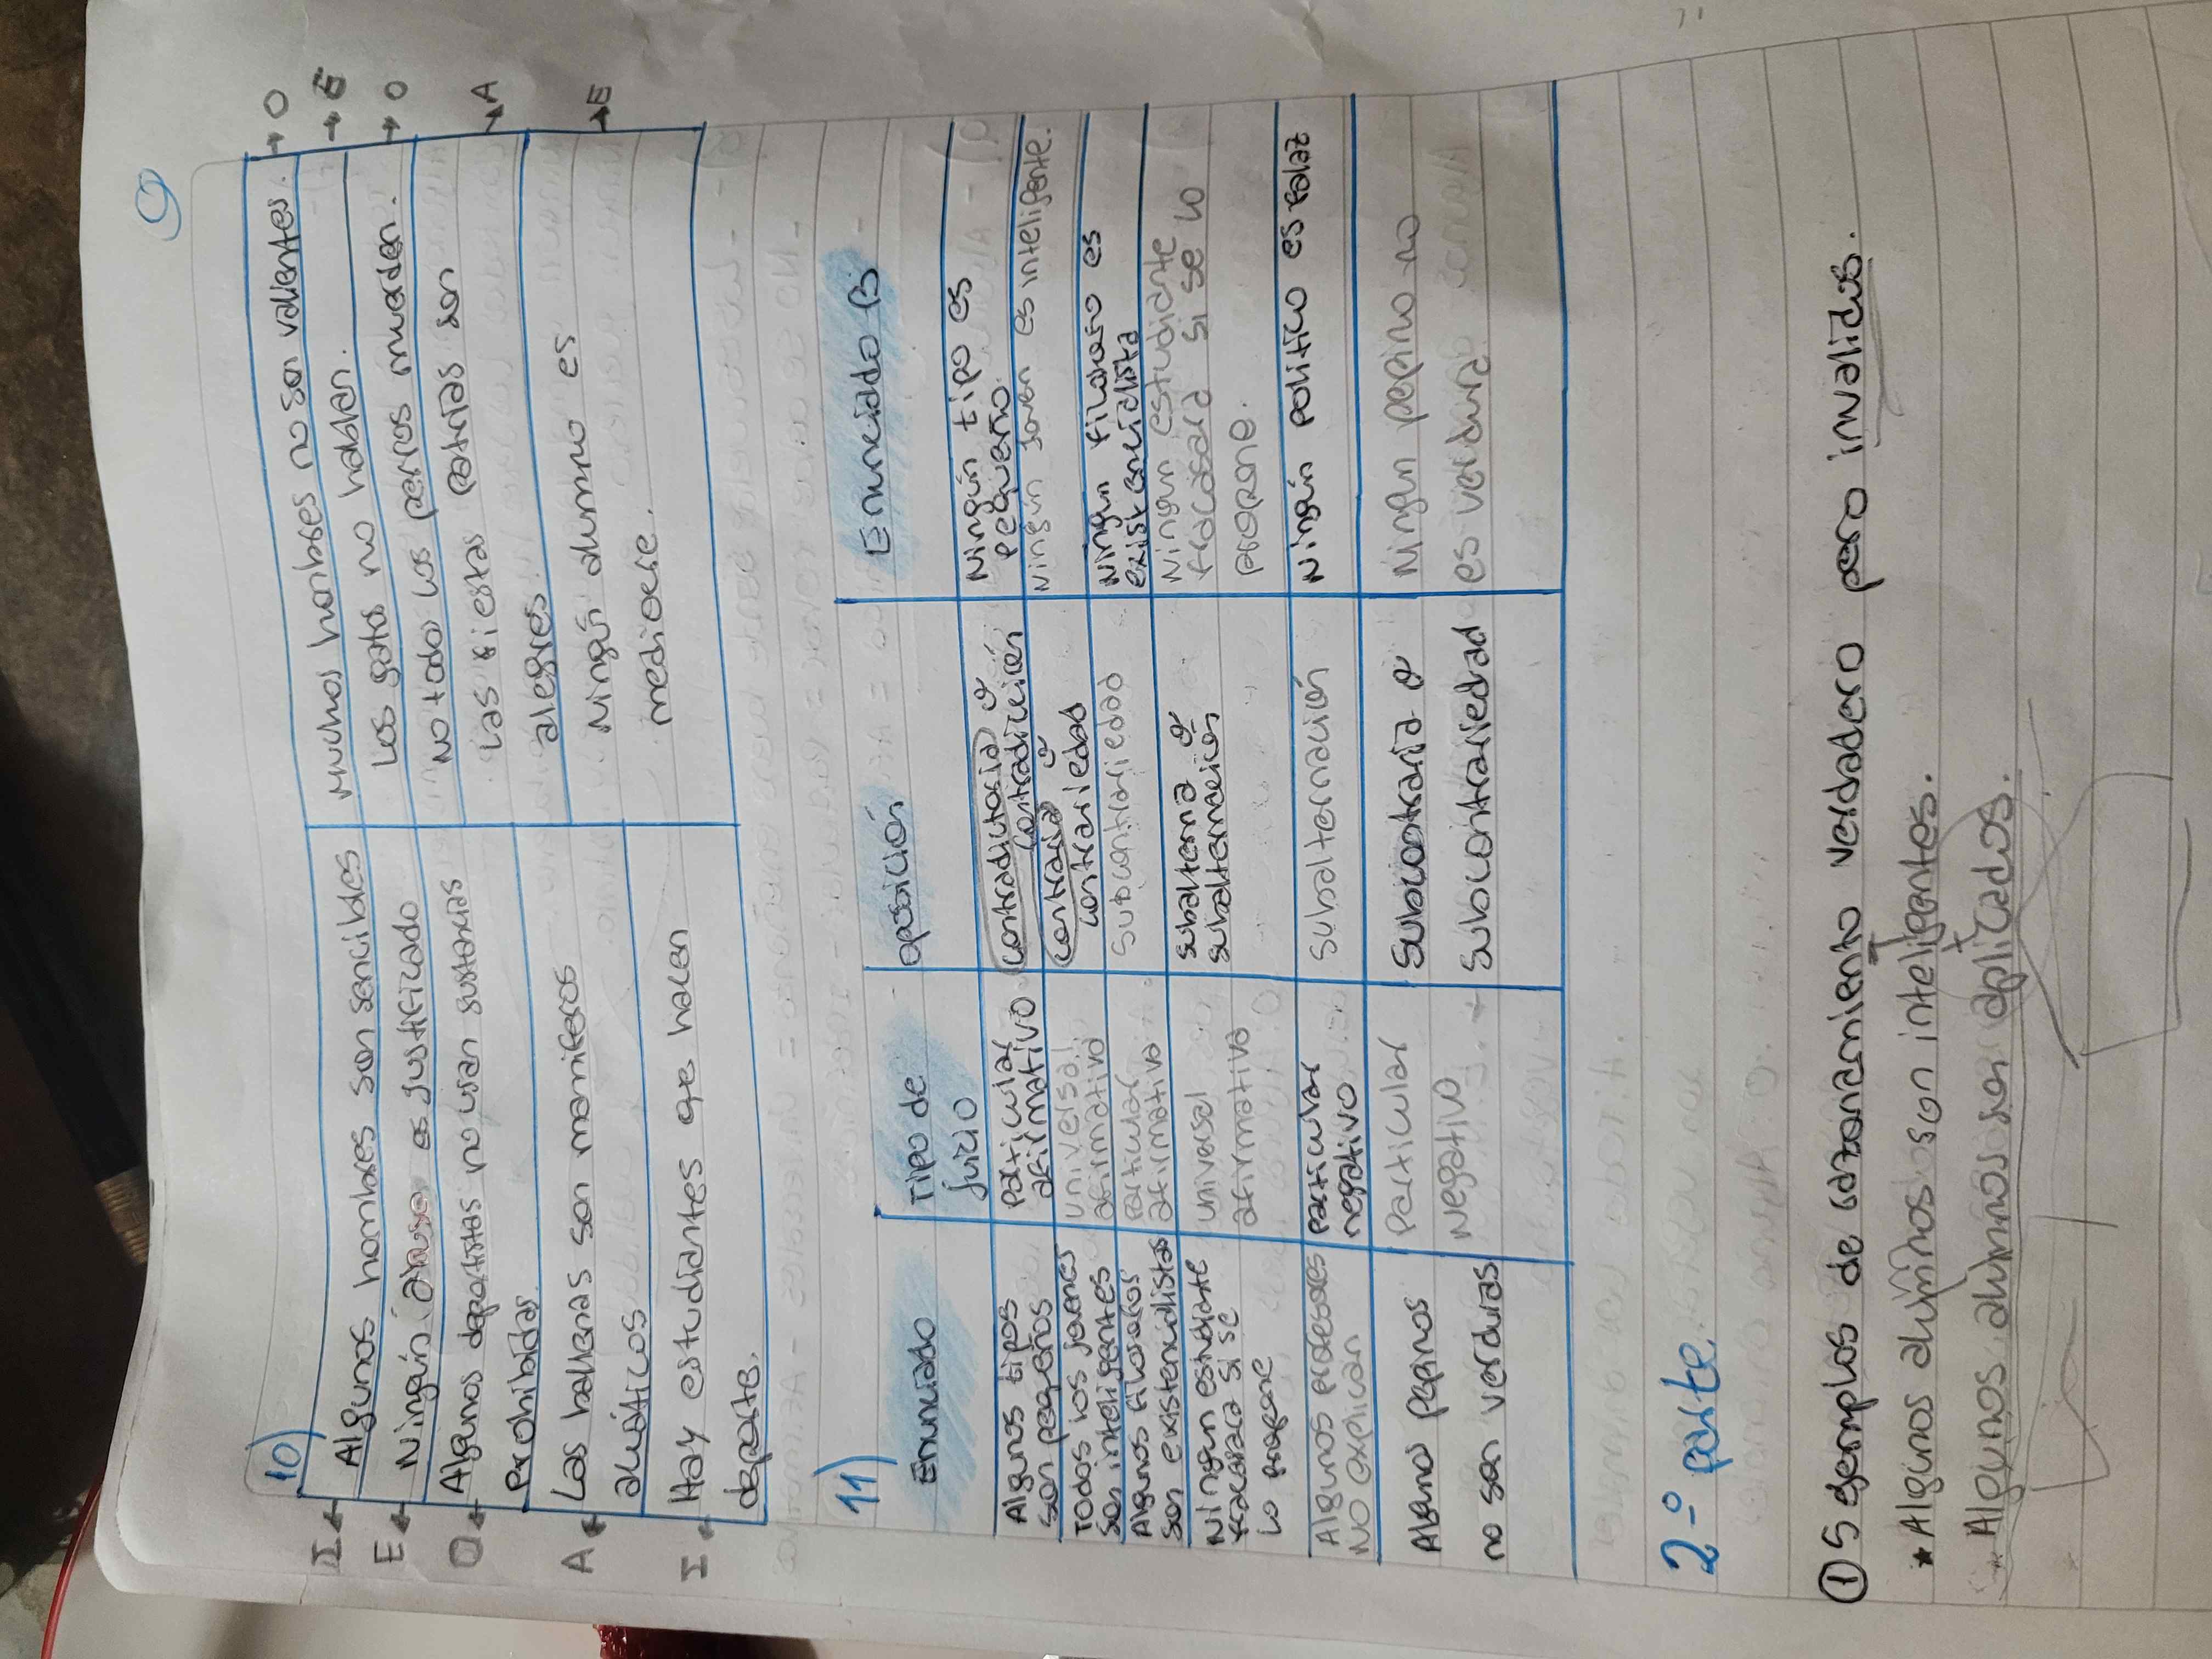 9
10)
I ← Algunos hombres son sencibles
Muchos hombres no son valientes. → O
E ← Ningún abuso es justificado
Los gatos no hablan. → E
O ← Algunos deportistas no usan sustancias
Prohibidas.
No todos los perros muerden. → O
A ← Las ballenas son mamiferos
acuáticos
Las fiestas patrias son → A
alegres.
I ← Hay estudiantes que hacen
deporte.
Ningún alumno es → E
mediocre.
11)
Enunciado
Tipo de
juicio
oposición
Enunciado B
Algunos tipos
son pequeños
particular
afirmativo
Contradictoria o
contradicción
Ningún tipo es
pequeño.
Todos los jovenes
son inteligentes
universal
afirmativo
Contraria o
contrariedad
Ningún joven es inteligente.
Algunos filosofos
son existencialistas
particular
afirmativo
Subcontrariedad
Ningun filosofo es
existencialista
Ningun estudiante
fracasara si se
lo propone
universal
afirmativo
subalterna o
subalternación
Ningun estudiante
fracasará si se lo
propone.
Algunos profesores
No explican
particular
negativo
Subalternación
Ningún politico es
Alguno pepinos
no son verduras
Particular
Negativo
Subcontraria o
Subcontrariedad
Ningun pepino no
es verdura
2-° parte.
① 5 ejemplos de razonamiento verdadero pero invalidos.
★ Algunos alumnos son inteligentes.
Algunos alumnos son aplicados.